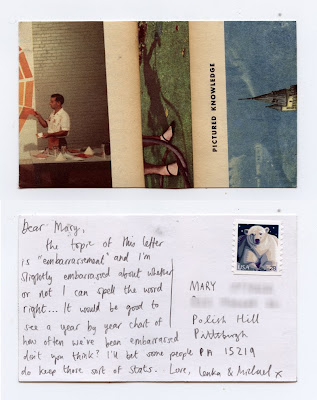 PICTURED KNOWLEDGE
Dear Mary,
the topic of this letter
is "embarrassment" and I'm
slightly embarrassed about whether
or not I can spell the word
right... It would be good to
see a year by year chart of
how often we've been embarrassed
don't you think? I'll bet some people
do keep those sort of stats. Love, Lenka & Michael x
USA
MARY
Polish Hill
Pittsburgh
PA 15219